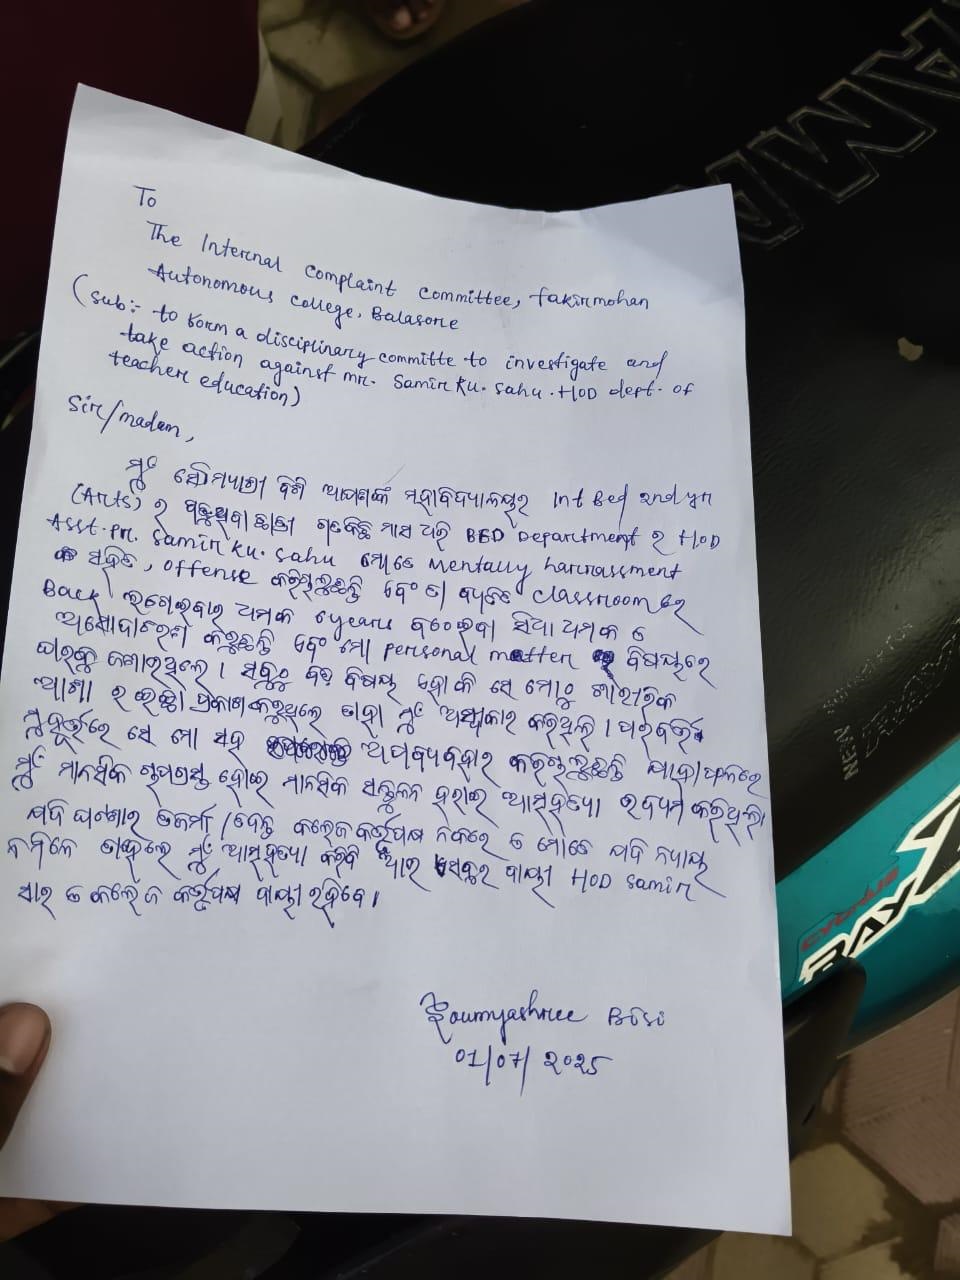 To
The Internal Complaint Committee, fakirmohan
Autonomous College, Balasore
(Sub:- to form a disciplinary committe to investigate and
take action against mr. Samir Ku. Sahu. HOD dept. of
teacher education)
Sir/madam,
ମୁଁ ସୌମ୍ୟଶ୍ରୀ ବିଶି ଆପଣଙ୍କ ମହାବିଦ୍ୟାଳୟର Int Bed 2nd yr
(Arts) ର ପଢୁଥିବା ଛାତ୍ରୀ ଗତକିଛି ମାସ ଧରି BED Department ର HOD
Asst. Pr. Samir Ku. Sahu ମୋତେ Mentally harrassment
ସହିତ, offense କରିଚାଲୁଛନ୍ତି ଏବଂ ତା ବ୍ୟତୀତ classroom ରେ
Back ଲଗେଇବାର ଧମକ years ବଢେଇବା ସିଆ ଧମକ ଓ
କରୁଛନ୍ତି ଏବଂ ମୋ personal matter ବିଷୟରେ
ଘରକୁ ଜଣାଇଥିଲେ । ସବୁଠୁ ବଡ଼ ବିଷୟ ହେଲା କି ସେ ମୋଠୁ ଶାରୀରିକ
ଆଶା ର ଇଚ୍ଛା ପ୍ରକାଶ କରୁଥିଲେ ତାହା ମୁଁ ଅସ୍ୱୀକାର କରିଥିଲି । ପରବର୍ତ୍ତି
ମୁହୂର୍ତ୍ତରେ ସେ ମୋ ସହ ଅପବ୍ୟବହାର କରିଚାଲୁଛନ୍ତି ଯାହାଫଳରେ
ମୁଁ ମାନସିକ ଚାପଗ୍ରସ୍ତ ହୋଇ ମାନସିକ ସନ୍ତୁଳନ ହରାଇ ଆତ୍ମହତ୍ୟା ଉଦ୍ୟମ କରିଥିଲି।
ଯଦି ଘଟଣାର ତର୍ଜମା / କଲେଜ କର୍ତ୍ତୃପକ୍ଷ ନକରେ ଓ ମୋତେ ଯଦି ନ୍ୟାୟ
ନମିଳେ ତାହେଲେ ମୁଁ ଆତ୍ମହତ୍ୟା କରିବି ଆର ସବୁର ଦାୟୀ HOD Samir
ସାର୍ ଓ କଲେଜ କର୍ତ୍ତୃପକ୍ଷ ଦାୟୀ ରହିବେ ।
Soumyashree Bisi
01/07/2025
RAY